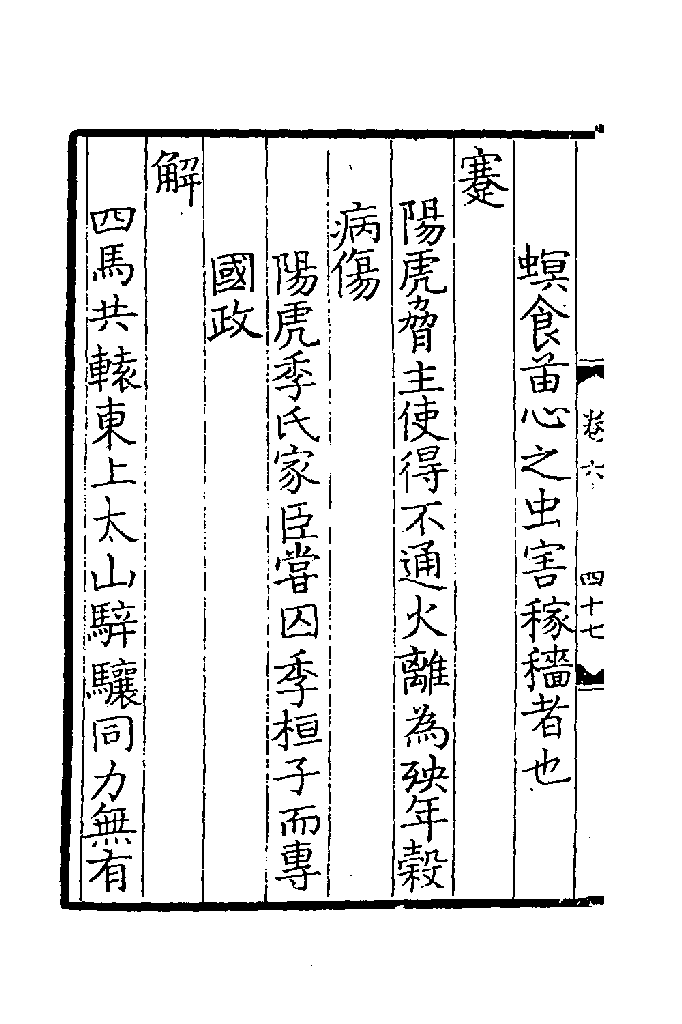 卷六 四十七
螟食苗心之虫害稼穡者也
蹇
陽虎脅主使得不通火離為殃年穀
病傷
陽虎季氏家臣嘗囚季桓子而專
國政
解
四馬共轅東上太山騂驤同力無有